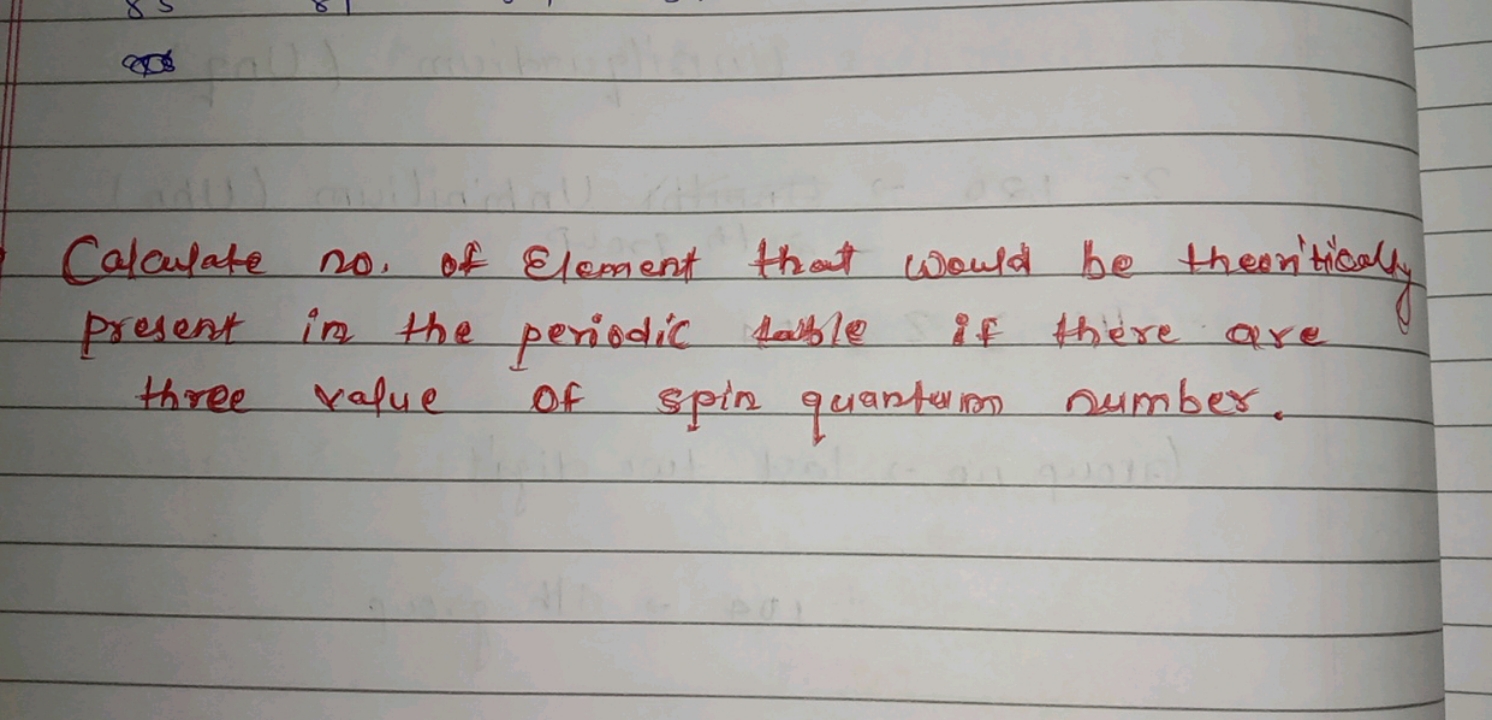 Calculate no. of Element that would be theoritically
present in the periodic table if there are
three value of spin quantum number.